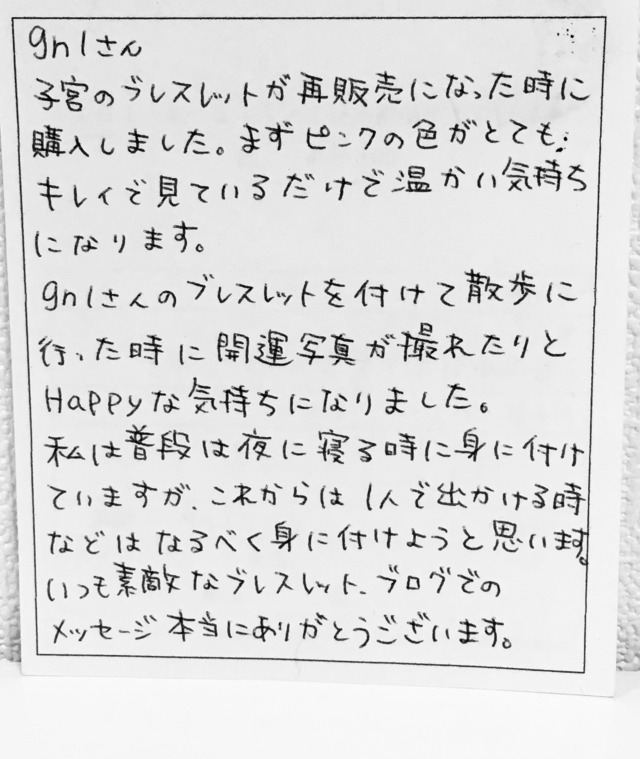 gnlさん
子宮のブレスレットが再販売になった時に
購入しました。まずピンクの色がとても
キレイで見ているだけで温かい気持ち
になります。
gnlさんのブレスレットを付けて散歩に
行った時に開運写真が撮れたりと
Happyな気持ちになりました。
私は普段は夜に寝る時に身に付け
ていますが、これからは1人で出かける時
などはなるべく身に付けようと思います。
いつも素敵なブレスレット、ブログでの
メッセージ本当にありがとうございます。